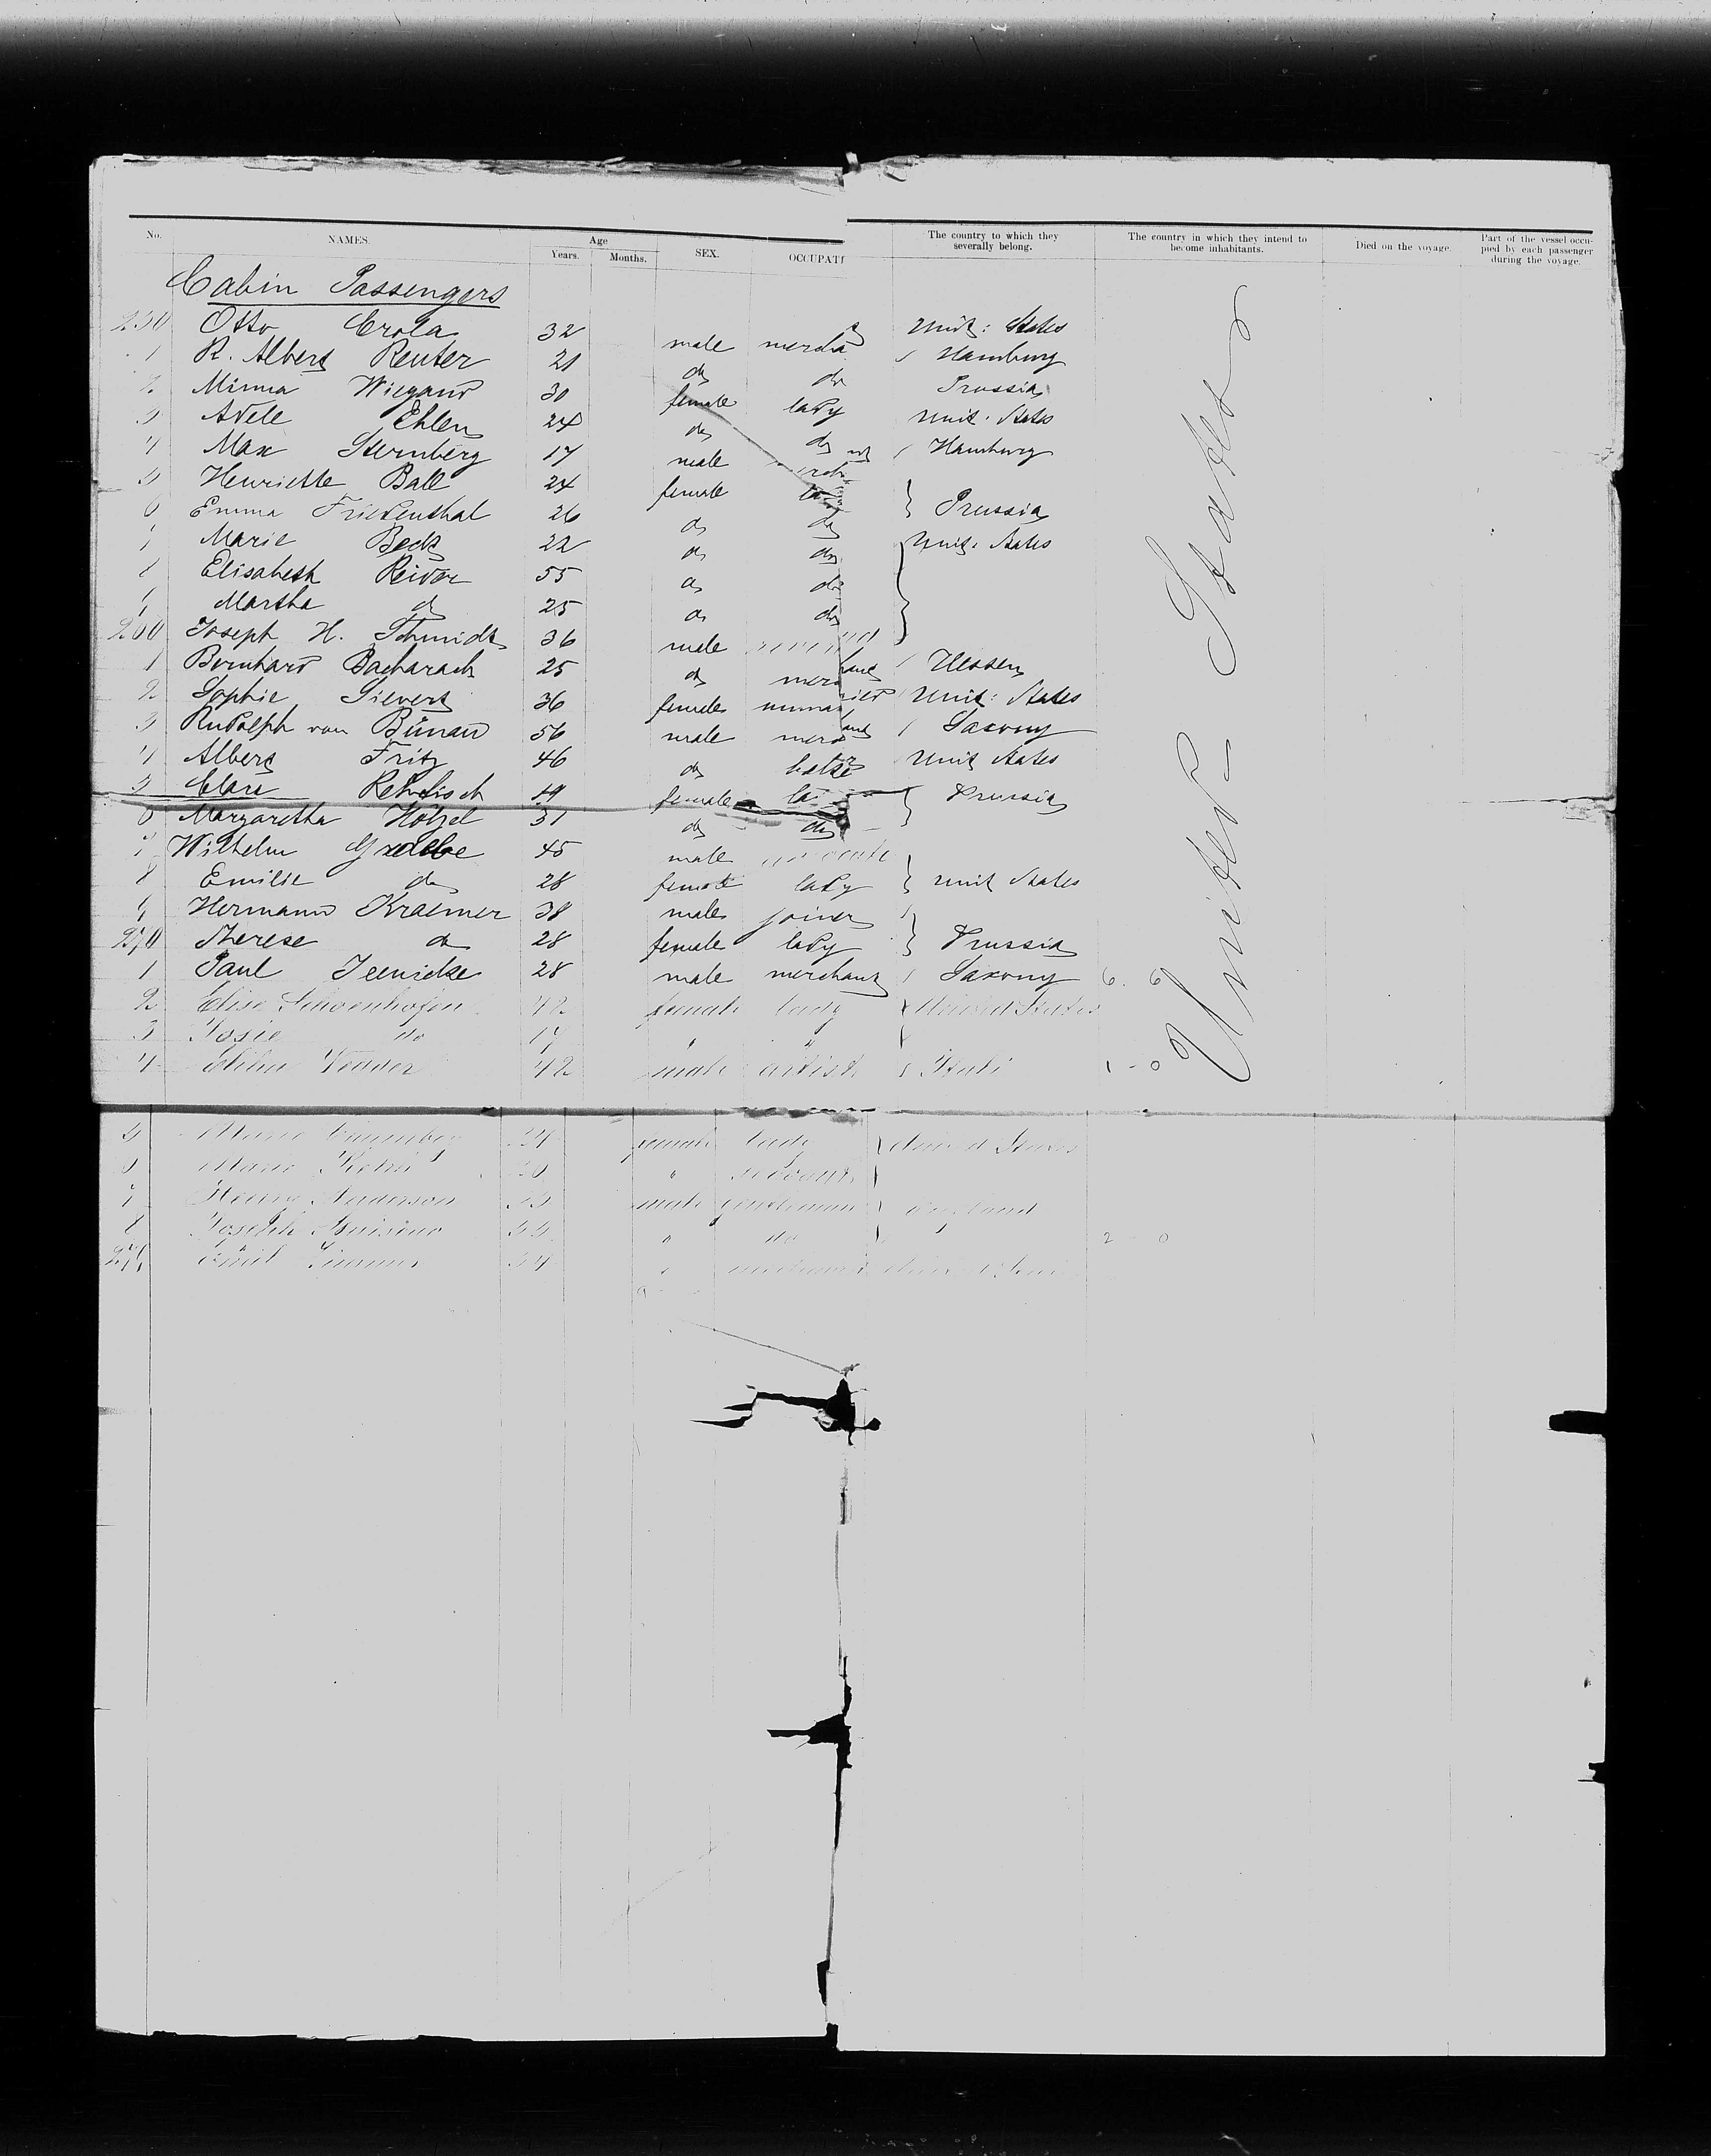 No. NAMES. Age Years. Months. SEX. OCCUPATI The country to which they severally belong. The country in which they intend to become inhabitants. Died on the voyage. Part of the vessel occupied by each passenger during the voyage.
Cabin Passengers
250 Otto Crola 32 male mercha Unit: States
1 R. Albert Reuter 21 do do Hamburg
2 Minna Wiegand 30 female lady Prussia
3 Adele Ehlen 24 do do Unit. States
4 Max Sternberg 17 male Hamburg
5 Henriette Ball 24 female la Prussia
6 Emma Friedenthal 26 do do
7 Marie Beck 22 do do Unit. States
8 Elisabeth 55 do do
9 Martha do 25 do do
260 Joseph H. Schmidt 36 male
1 Bernhard Bacharach 25 do merchant Hessen
2 Sophie Sievert 36 female unmarried Unit: States
3 Rudolph von Bünau 56 male merchant Saxony
4 Albert Fritz 46 do Unit States
5 Clara 19 female la Prussia
6 Margaretha Hölzel 31 do do
7 Wilhelm 45 male
8 Emilie do 28 female lady Unit States
9 Hermann Kraemer 38 male joiner
270 Therese do 28 female lady Prussia
1 Paul Jeenicke 28 male merchant Saxony 6. 6
2 Elise 42 female lady United States
3 Josie do 17 "
4 42 male artist Itali 1 - 0
5 Marie 24 female lady United States
6 Marie 20 " servant
7 Henry Anderson male gentleman England
8 Joseph " do 2 - 0
279 Emil "
United States